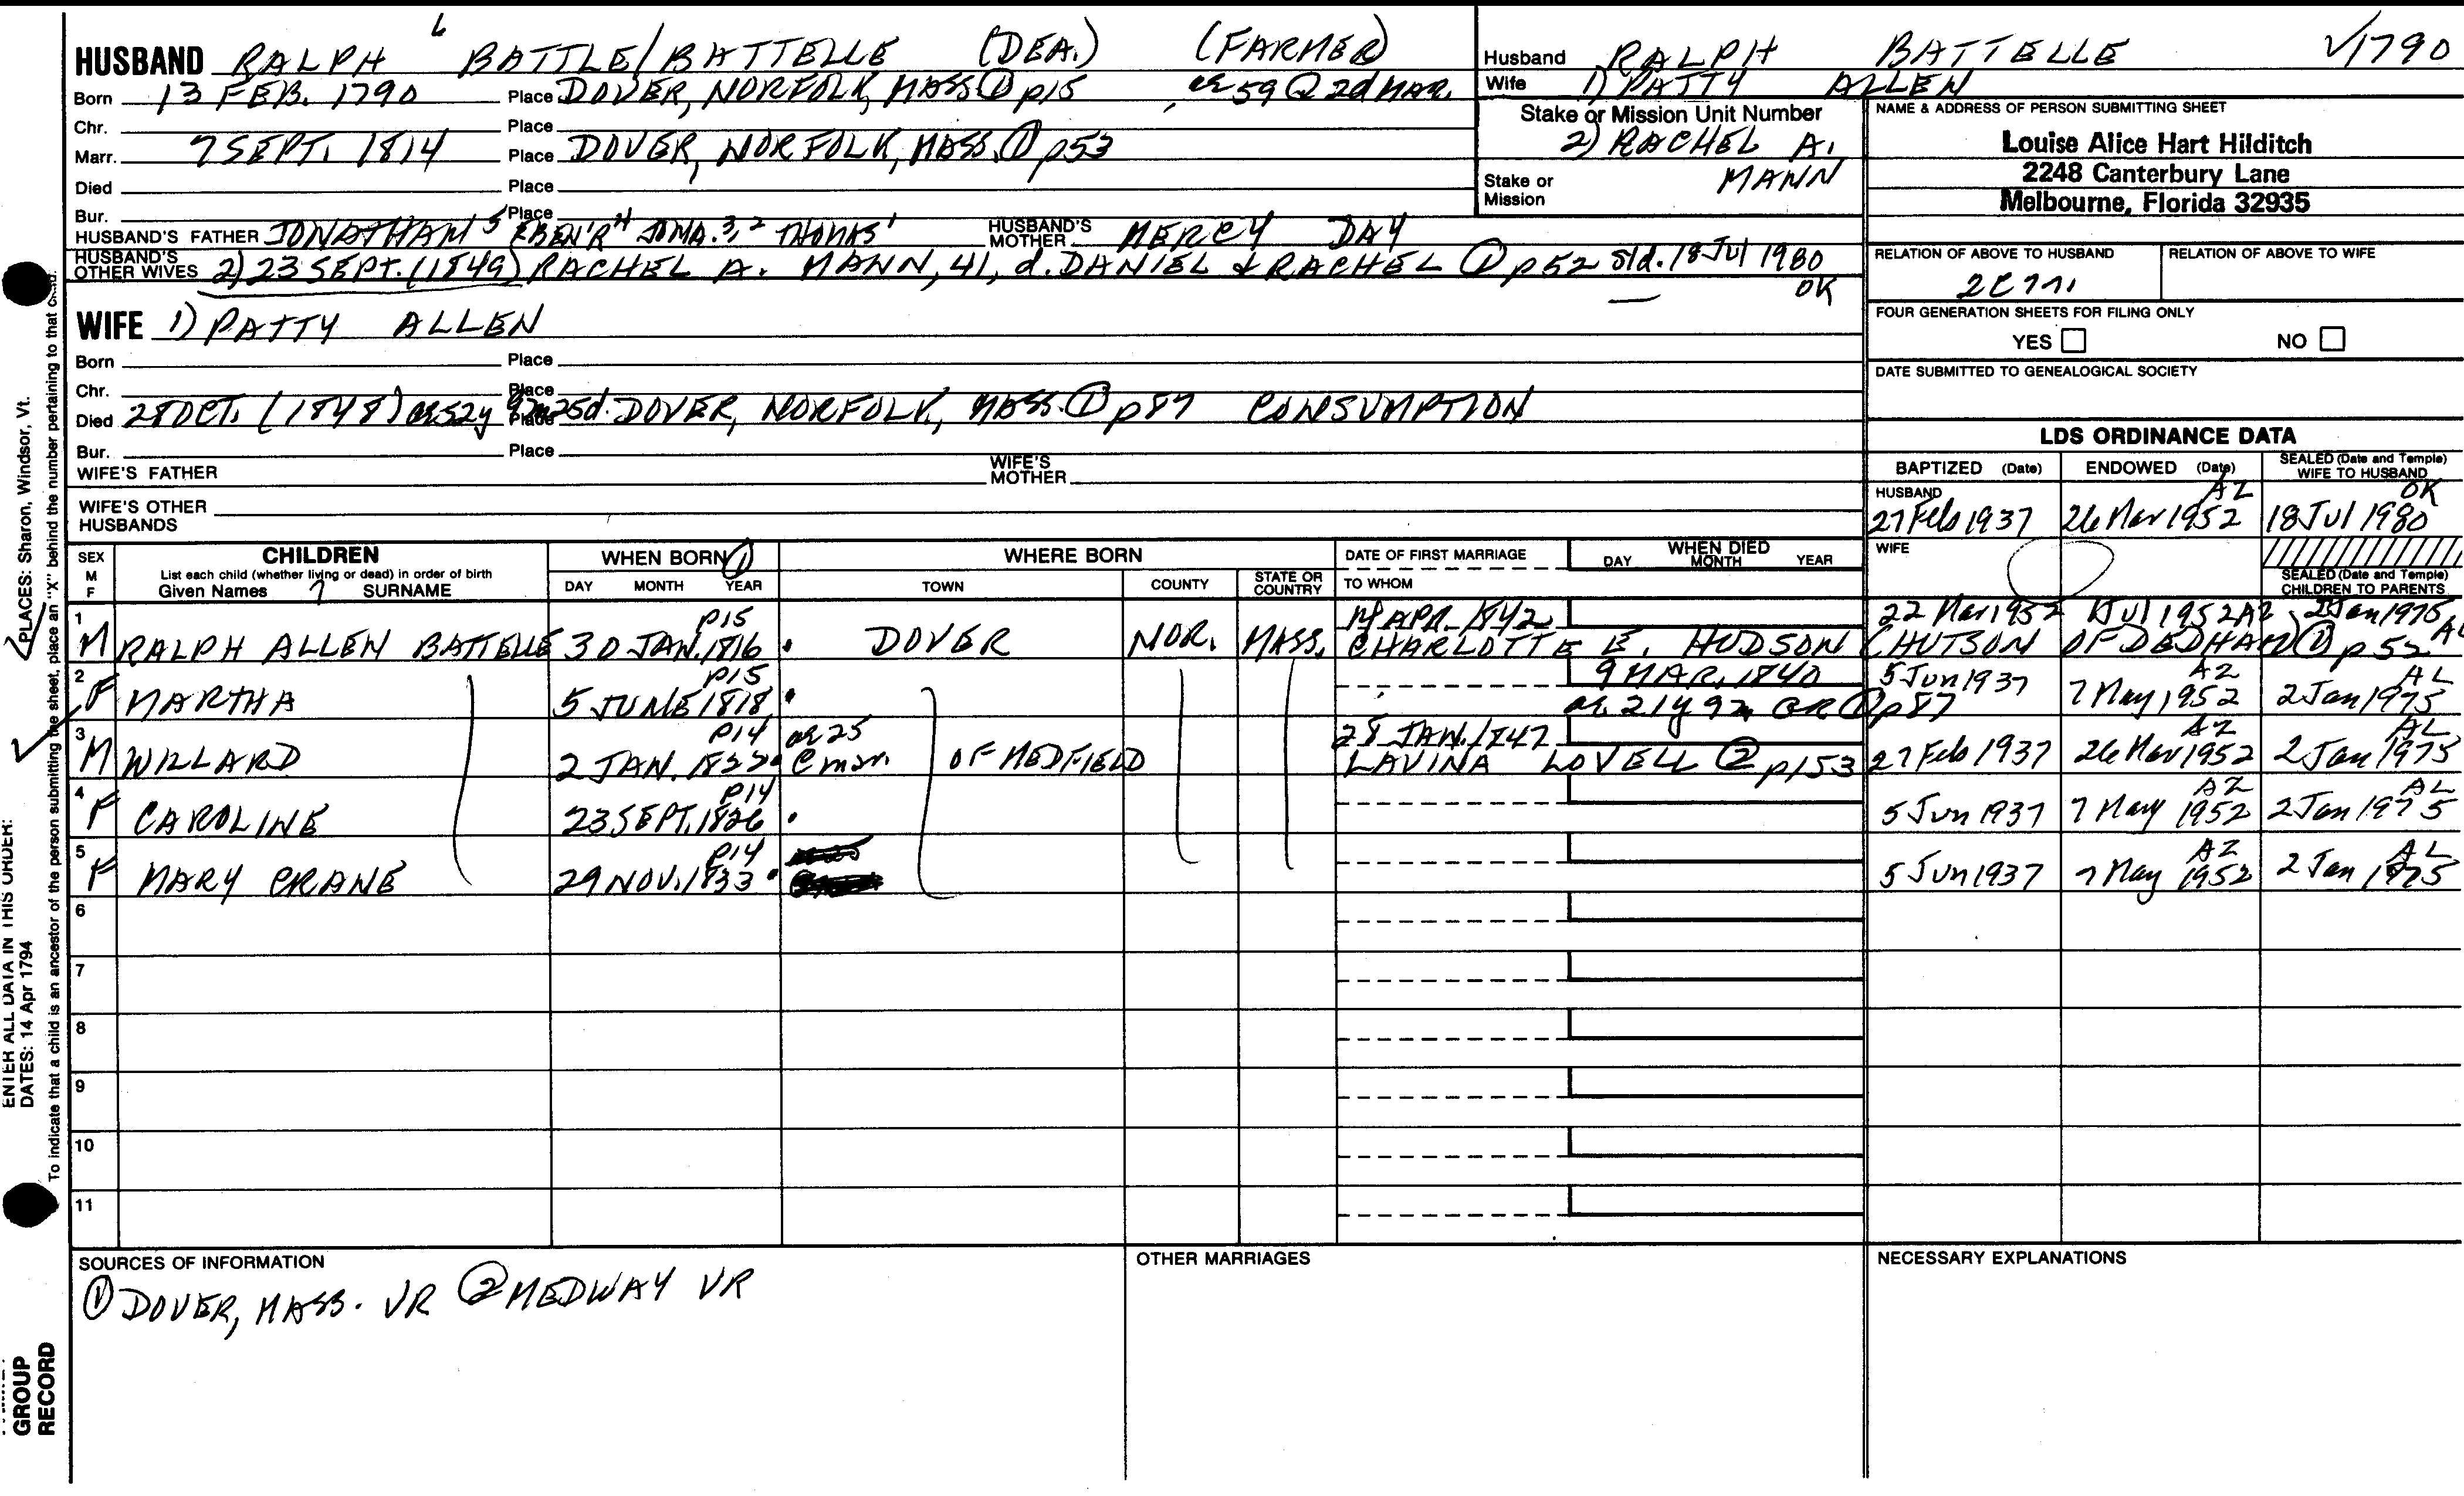 HUSBAND RALPH 6 BATTLE/BATTELLE (DEA.) (FARMER)
Born 13 FEB. 1790 Place DOVER, NORFOLK, MASS. ① p15 ae 59 @ 2d MAR.
Chr. Place
Marr. 7 SEPT. 1814 Place DOVER, NORFOLK, MASS. ① p53
Died Place
Bur. Place
HUSBAND'S FATHER JONATHAN 5 EBEN'R 4 JONA. 3, 2 THOMAS 1 HUSBAND'S MOTHER MERCY DAY
HUSBAND'S OTHER WIVES 2) 23 SEPT. (1849) RACHEL A. MANN, 41, d. DANIEL & RACHEL ① p52 sld. 18 Jul 1980 OK
WIFE 1) PATTY ALLEN
Born Place
Chr. Place
Died 28 OCT. (1848) ae 52y 9m 25d. Place DOVER, NORFOLK, MASS. ① p87 CONSUMPTION
Bur. Place
WIFE'S FATHER WIFE'S MOTHER
WIFE'S OTHER HUSBANDS
Husband RALPH BATTELLE √1790
Wife 1) PATTY ALLEN
Stake or Mission Unit Number
2) RACHEL A. MANN
Stake or Mission
NAME & ADDRESS OF PERSON SUBMITTING SHEET
Louise Alice Hart Hilditch
2248 Canterbury Lane
Melbourne, Florida 32935
RELATION OF ABOVE TO HUSBAND RELATION OF ABOVE TO WIFE
FOUR GENERATION SHEETS FOR FILING ONLY
YES NO
DATE SUBMITTED TO GENEALOGICAL SOCIETY
LDS ORDINANCE DATA
BAPTIZED (Date) ENDOWED (Date) SEALED (Date and Temple) WIFE TO HUSBAND
HUSBAND 27 Feb 1937 26 Mar 1952 AZ 18 Jul 1980 OK
WIFE
SEALED (Date and Temple) CHILDREN TO PARENTS
SEX M F CHILDREN WHEN BORN ① WHERE BORN DATE OF FIRST MARRIAGE WHEN DIED
List each child (whether living or dead) in order of birth
Given Names 7 SURNAME DAY MONTH YEAR TOWN COUNTY STATE OR COUNTRY TO WHOM DAY MONTH YEAR
1 M RALPH ALLEN BATTELLE p15 30 JAN. 1816 DOVER NOR. MASS. 14 APR. 1842 CHARLOTTE E. HUDSON (HUTSON OF DEDHAM) ① p52 22 Mar 1952 1 Jul 1952 AZ 2 Jan 1975 AL
2 F MARTHA p15 5 JUNE 1818 9 MAR. 1840 ae 21y 9m GR ① p87 5 Jun 1937 7 May 1952 AZ 2 Jan 1975 AL
3 M WILLARD p14 2 JAN. 1822 ae 25 @ mar. OF MEDFIELD 28 JAN. 1847 LAVINA LOVELL ② p153 27 Feb 1937 26 Mar 1952 AZ 2 Jan 1975 AL
4 F CAROLINE p14 23 SEPT. 1826 5 Jun 1937 7 May 1952 AZ 2 Jan 1975 AL
5 F MARY CRANE p14 29 NOV. 1833 5 Jun 1937 7 May 1952 AZ 2 Jan 1975 AL
6
7
8
9
10
11
SOURCES OF INFORMATION OTHER MARRIAGES NECESSARY EXPLANATIONS
① DOVER, MASS. VR ② MEDWAY VR
GROUP RECORD
ENTER ALL DATA IN THIS ORDER:
DATES: 14 Apr 1794
PLACES: Sharon, Windsor, Vt.
To indicate that a child is an ancestor of the person submitting the sheet, place an "X" behind the number pertaining to that child.